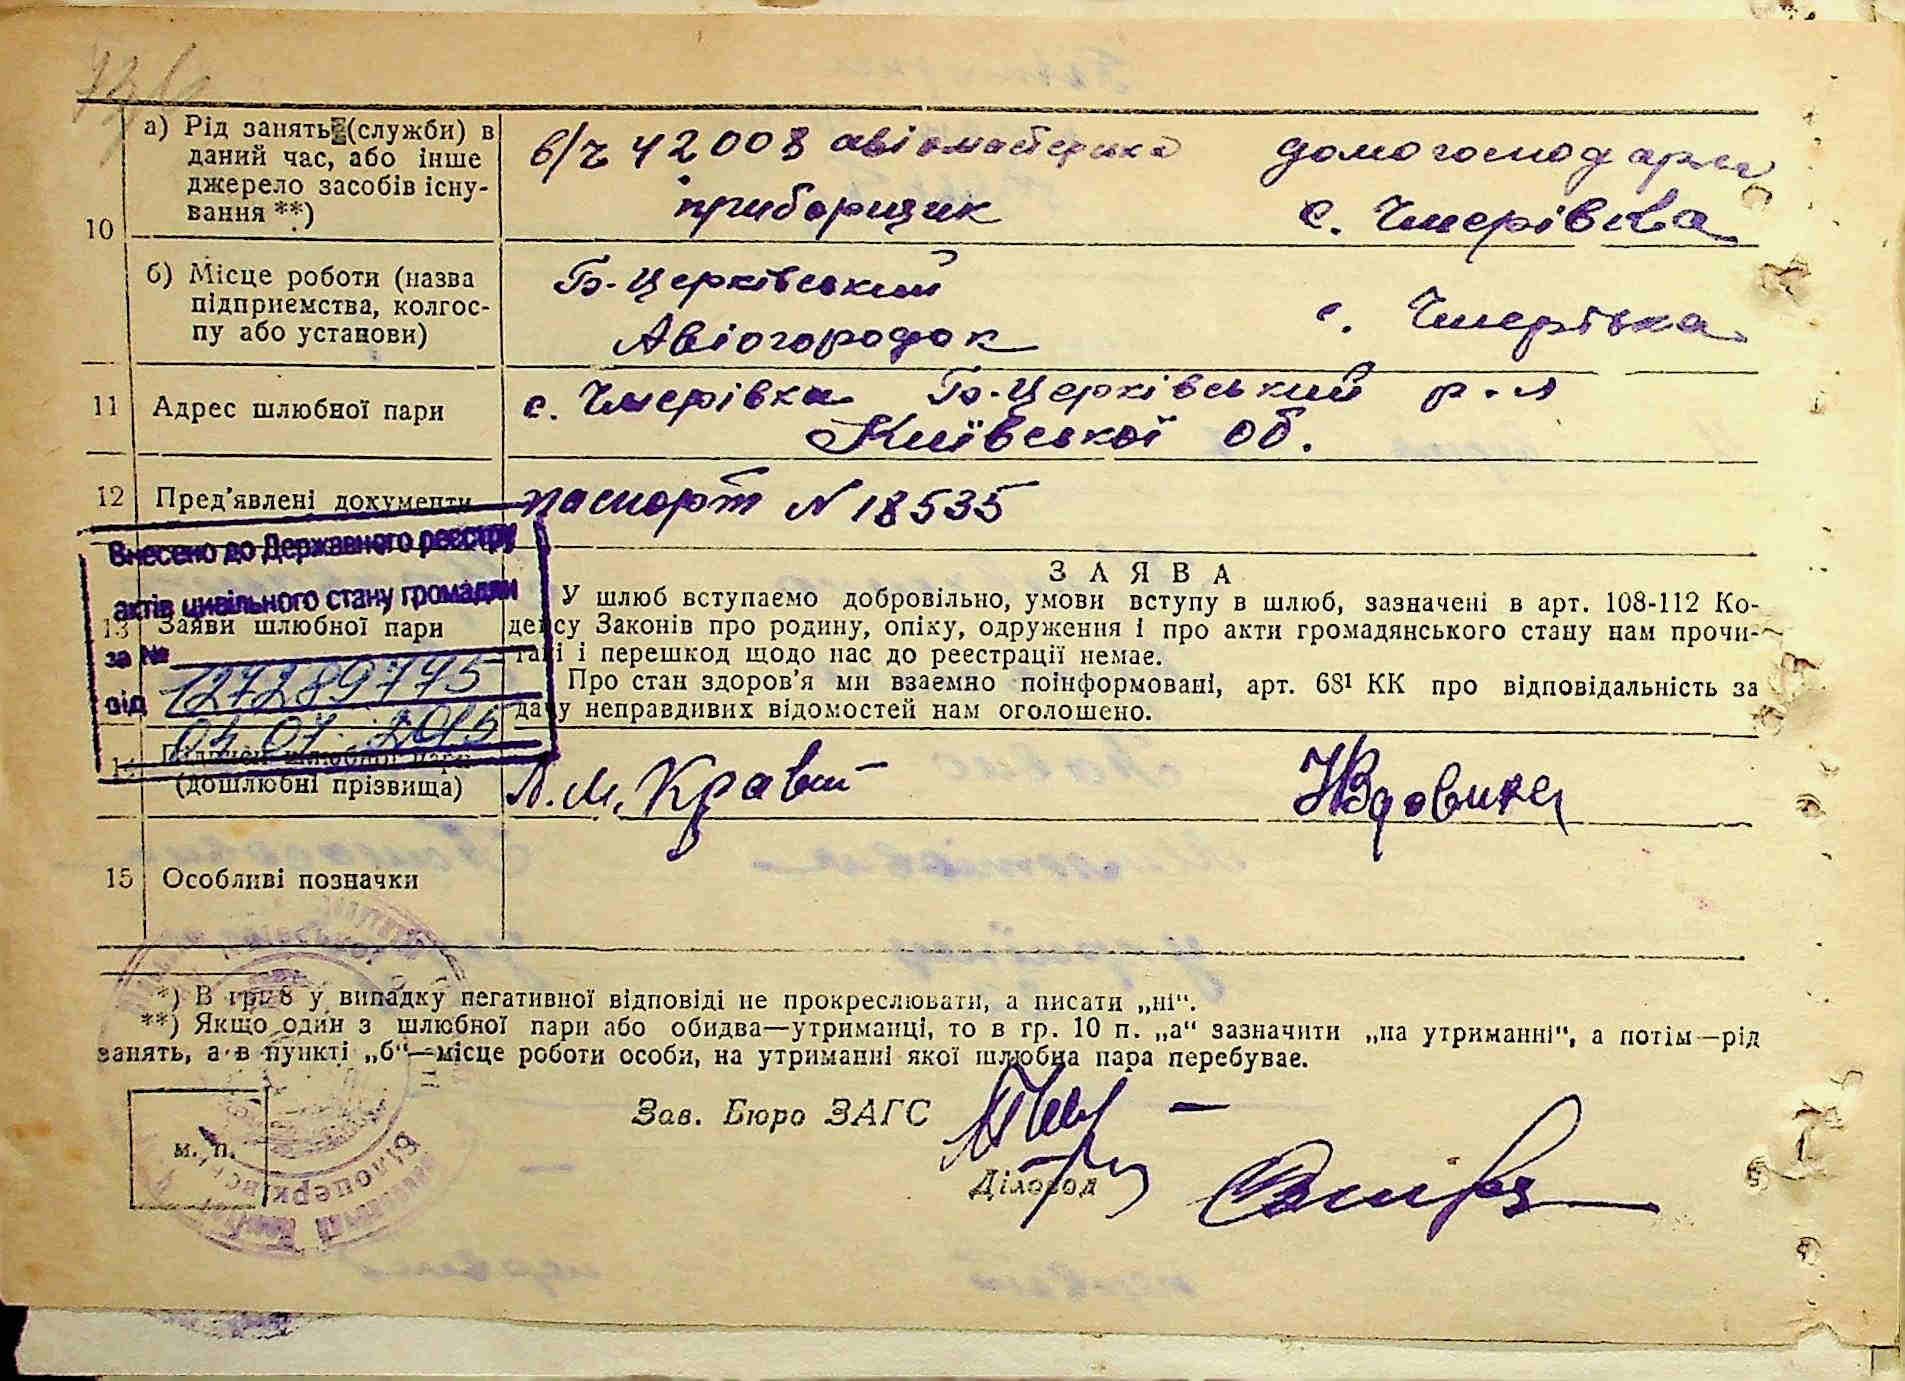 10
а) Рід занять (служби) в
даний час, або інше
джерело засобів існу-
вання **)
в/ч 42008 авіомастерська
приборщик
домогосподарка
с. Чмерівка
б) Місце роботи (назва
підприємства, колгос-
пу або установи)
Б-Церківський
Авіогородок
с. Чмерівка
11 Адрес шлюбної пари
с. Чмерівка Б-Церківський р-н
Київської об.
12 Пред'явлені документи
паспорт N 18535
Внесено до Державного реєстру
актів цивільного стану громадян
за №
127289775
від
04 07 2015
13 Заяви шлюбної пари
ЗАЯВА
У шлюб вступаємо добровільно, умови вступу в шлюб, зазначені в арт. 108-112 Ко-
дексу Законів про родину, опіку, одруження і про акти громадянського стану нам прочи-
тані і перешкод щодо нас до реєстрації немає.
Про стан здоров'я ми взаємно поінформовані, арт. 68¹ КК про відповідальність за
дачу неправдивих відомостей нам оголошено.
14 Підписи шлюбної пари
(дошлюбні прізвища)
Кравий
Вдовика
15 Особливі позначки
*) В гр. 8 у випадку негативної відповіді не прокреслювати, а писати „ні“.
**) Якщо один з шлюбної пари або обидва—утриманці, то в гр. 10 п. „а“ зазначити „на утриманні“, а потім—рід
занять, а в пункті „б“—місце роботи особи, на утриманні якої шлюбна пара перебуває.
Зав. Бюро ЗАГС
м. п.
Діловод